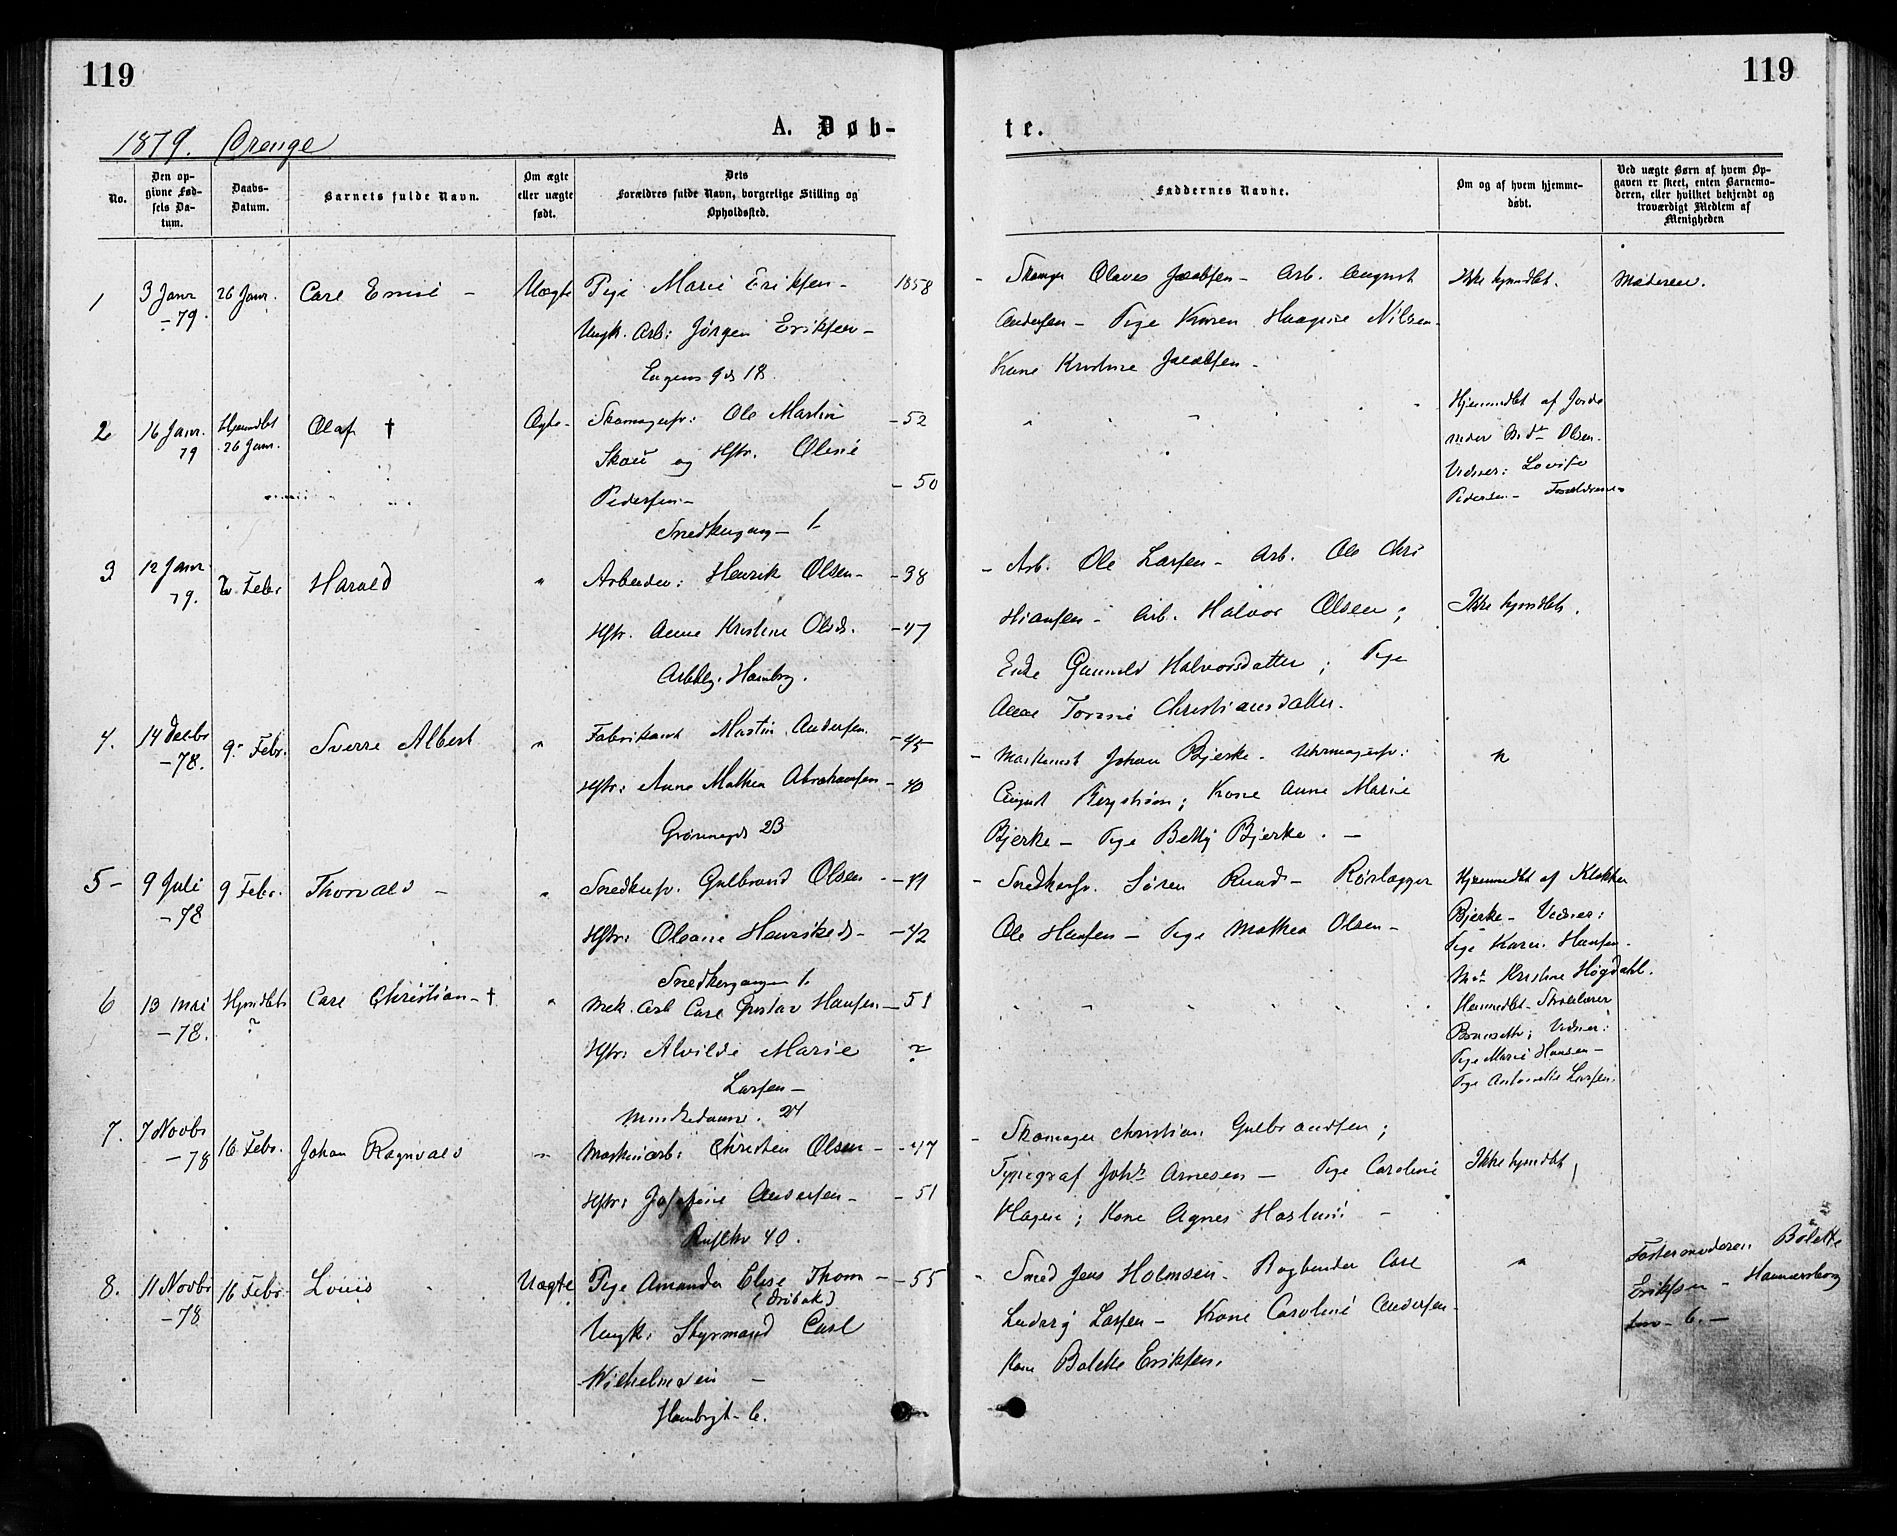 119
119
A. Døb-
te.
1879. Drenge
No.
Den op-
givne Fød-
sels Da-
tum.
Daabs-
Datum.
Barnets fulde Navn.
Om ægte
eller uægte
født.
Dets
Forældres fulde Navn, borgerlige Stilling og
Opholdssted.
Faddernes Navne.
Om og af hvem hjemme-
døbt.
Ved uægte Børn af hvem Op-
gaven er skeet, enten Barnemo-
deren, eller hvilket bekjendt og
troværdigt Medlem af
Menigheden
1
3 Janr
-79.
26 Janr.
Carl Emil -
Uægte
Pige Marie Eriksen -
1858
Ungk. Arb: Jørgen Eriksen -
Engens gd 18.
- Skomgr Olaves Jacobsen - Arb. August
Andersen - Pige Karen Haagine Nilsen -
Kone Kristine Jacobsen -
Ikke hjmdbt.
Moderen.
2
16 Janr.
79
Hjemdbt
26 Janr.
Olaf †
Ægte -
Skomagersv: Ole Martin
- 52
Skau og Hstr. Oline
- 50
Pedersen -
Snedkergang - 1.
Hjemmedbt af Jorde
moder Olsen.
Vidner: Lovise
Pedersen - Forældrene
3
12 Janr
79.
2 Febr
Harald
"
Arbeider: Henrik Olsen -
- 38
Hstr. Anne Kristine Olsd.
- 47
Arbblg. Hambrg.
- Arb. Ole Larsen - Arb. Ole Chri
stiansen - Arb. Halvor Olsen;
Enke Gunnild Halvorsdatter; Pige
Anne Tomine Christiansdatter.
Ikke hjmdbt.
4.
14 Decbr
-78.
9 Febr.
Sverre Albert
"
Fabrikant Martin Andersen.
- 45
Hstr: Anne Mathea Abrahamsen
- 40
Grønnegd 23
- Maskinist Johan Bjerke - Uhrmagersv:
August Bergstrøm; Kone Anne Marie
Bjerke - Pige Betty Bjerke. -
"
5 -
9 Juli
-78
9 Febr.
Thorvald -
"
Snedkersv. Gulbrand Olsen -
- 41
Hstr: Oleane Henriksd -
- 42
Snedkergangen 1.
- Snedkersv. Søren Ruud - Rørlægger
Ole Hansen - Pige Mathea Olsen -
Hjemmedbt af Klokker
Bjerke - Vidner:
Pige Karen Hansen -
Md. Kristine Høgdahl.
6
13 Mai
-78.
Hjmdbt
?
Carl Christian - †
"
Mek. Arb Carl Gustav Hansen
- 51
Hstr: Alvilde Marie
?
Larsen -
Munkedamv. 24
Hemmedbt - Skolelærer
Vidner:
Pige Marie Hansen -
Pige Antonette Larsen.
7.
7 Novbr
-78
16 Febr.
Johan Ragnvald
"
Maskinarb: Christen Olsen -
- 47
Hstr: Josefine Andersen -
- 51
40.
- Skomager Christian Gulbrandsen;
Typograf Johs Arnesen - Pige Caroline
Hagen; Kone Agnes Haslund -
Ikke hjmdbt
8.
11 Novbr
-78
16 Febr.
Louis
Uægte
Pige Amanda Elise Thom -
- 55
(Drøbak)
Ungk: Styrmand Carl
Wilhelmsen -
Hambrgt - 6.
- Smed Jens Holmsen - Bogbinder Carl
Ludvig Larsen - Kone Caroline Andersen -
Kone Bolette Eriksen.
"
Fostermoderen Bolette
Eriksen - Hammersborg
6. -